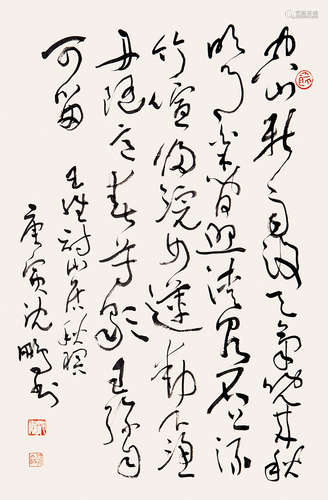 空山新雨後天氣晚來秋
明月松間照清泉石上流
竹喧歸浣女蓮動下漁
舟隨意春芳歇王孫自
可留
王維詩山居秋暝
庚寅沈鵬書